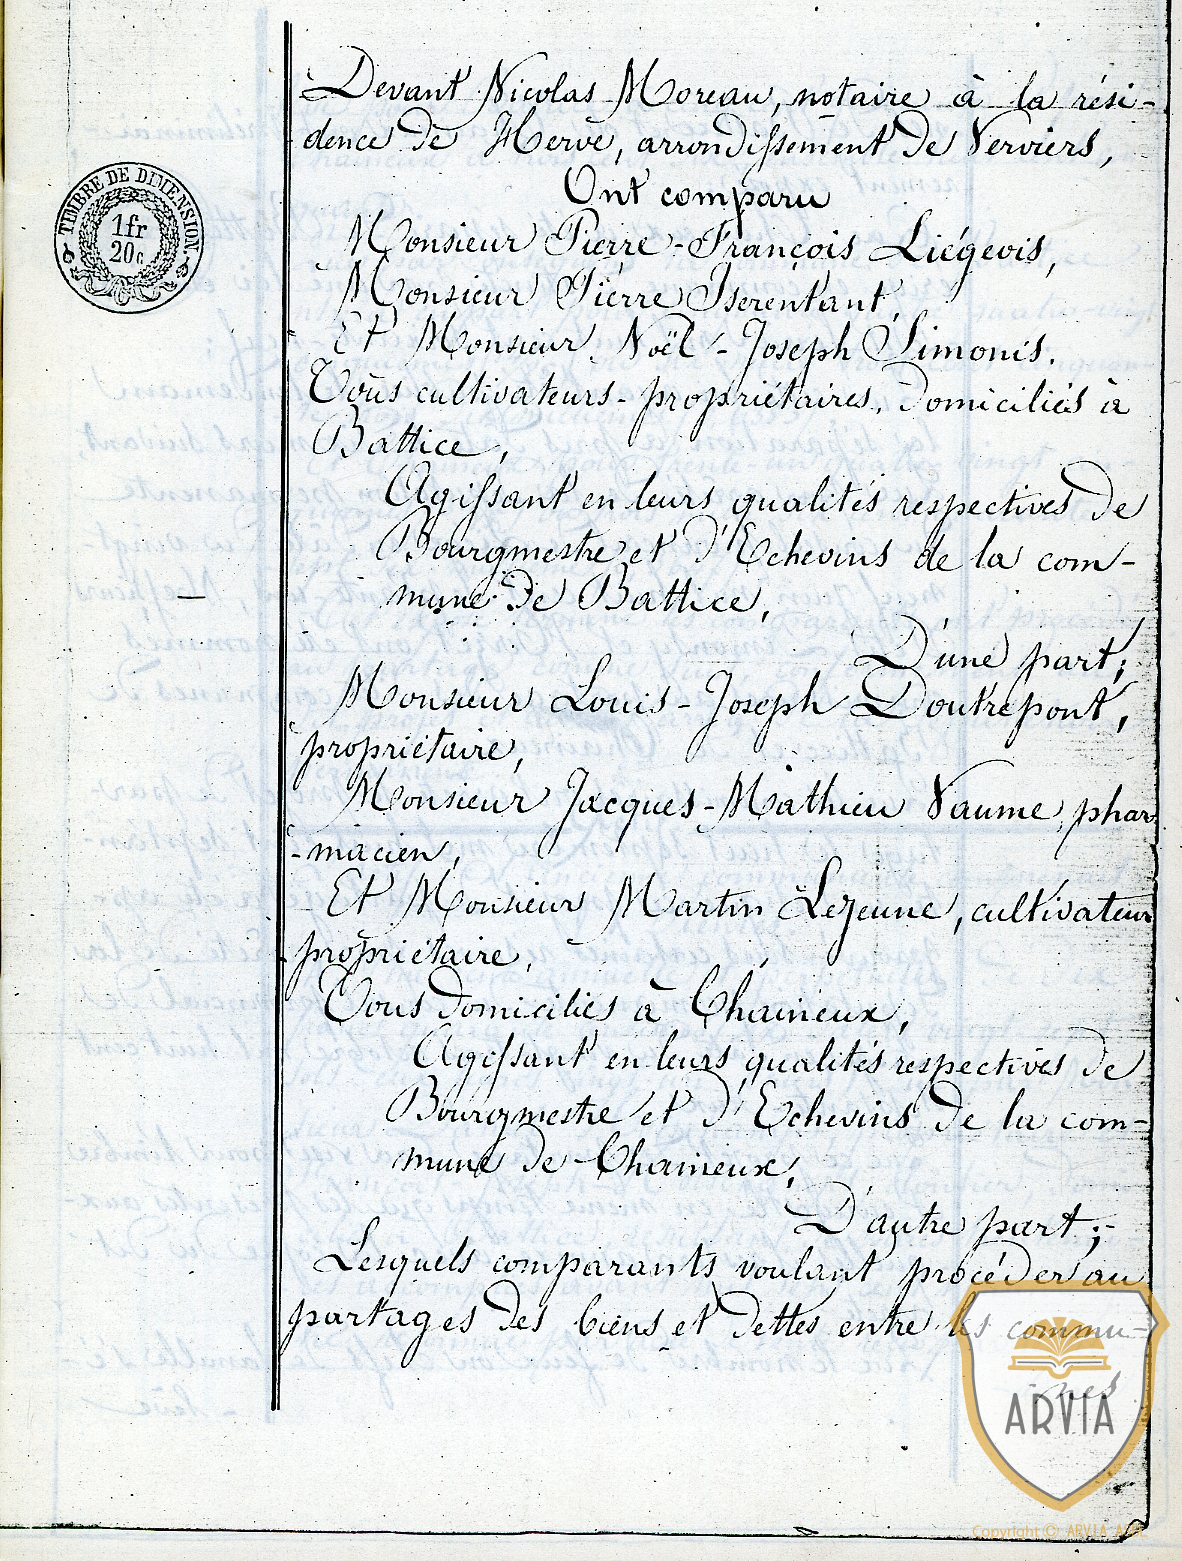 Devant Nicolas Moreau, notaire à la rési-
dence de Herve, arrondissement de Verviers,
Ont comparu
TIMBRE DE DIMENSION
1fr
20c
Monsieur Pierre-François Liégeois,
Monsieur Pierre Iserentant,
Et Monsieur Noël-Joseph Simonis.
Tous cultivateurs-propriétaires, domiciliés à
Battice,
Agissant en leurs qualités respectives de
Bourgmestre et d'Echevins de la com-
mune de Battice,
D'une part;
Monsieur Louis-Joseph Doutrepont,
propriétaire,
Monsieur Jacques-Mathieu Vaume, phar
-macien,
Et Monsieur Martin Lejeune, cultivateur
propriétaire,
Tous domiciliés à Chaineux,
Agissant en leurs qualités respectives de
Bourgmestre et d'Echevins de la com-
mune de Chaineux,
D'autre part;-
Lesquels comparants voulant procéder au
partages des biens et dettes entre les commu-
-nes
ARVIA
Copyright © ARVIA